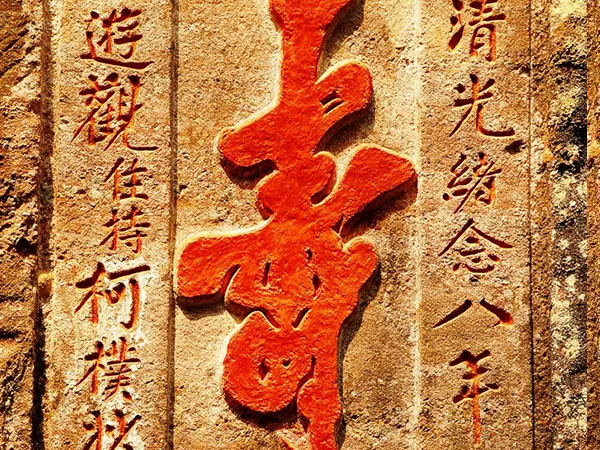 清光緒念八年
壽
遊觀住持柯樸